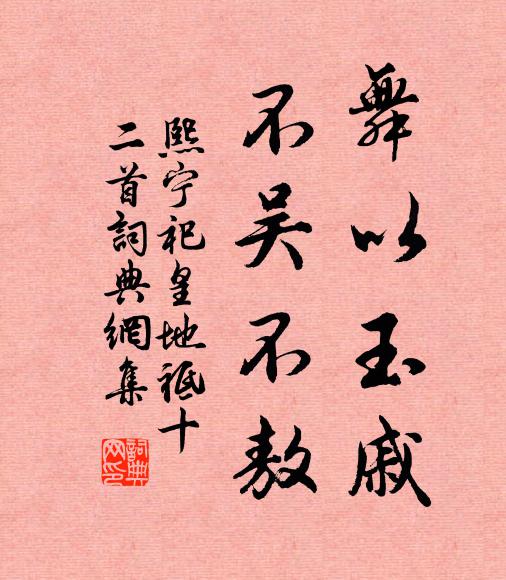 舞以玉戚
不吴不敖
熙宁祀皇地祗十
二首詞典網集
詞典網印